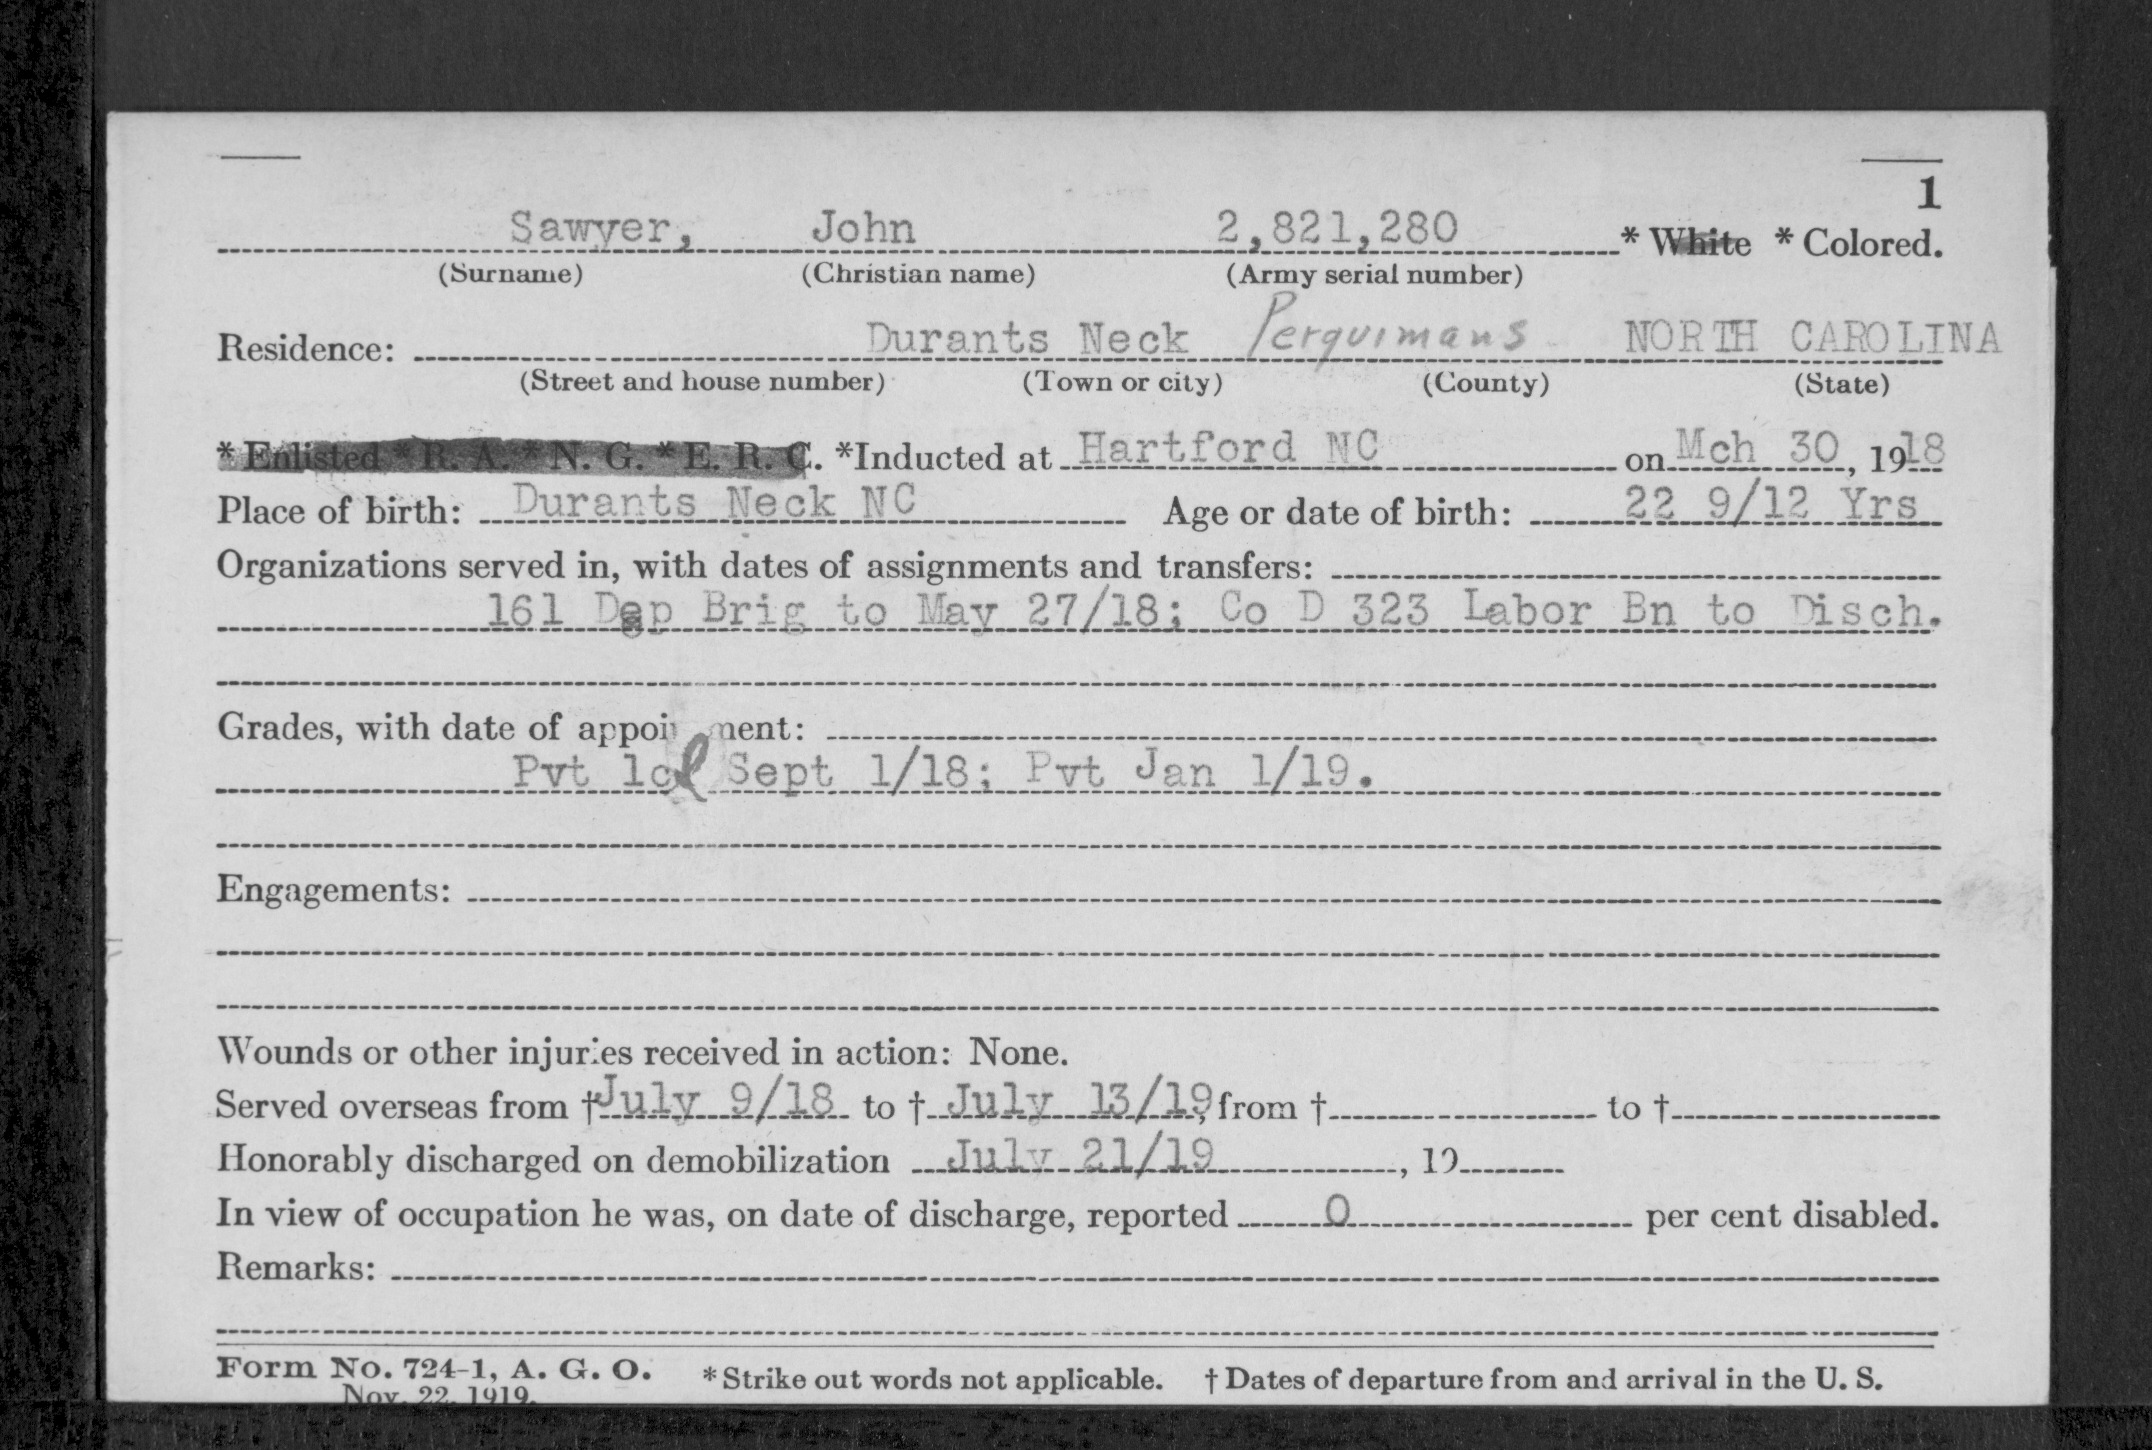 1
Sawyer, John 2,821,280 * White * Colored.
(Surname) (Christian name) (Army serial number)
Residence: Durants Neck Perquimans NORTH CAROLINA
(Street and house number) (Town or city) (County) (State)
* Enlisted * R. A. * N. G. * E. R. C. *Inducted at Hartford NC on Mch 30, 1918
Place of birth: Durants Neck NC Age or date of birth: 22 9/12 Yrs
Organizations served in, with dates of assignments and transfers:
161 Dep Brig to May 27/18; Co D 323 Labor Bn to Disch.
Grades, with date of appointment:
Pvt 1cl Sept 1/18; Pvt Jan 1/19.
Engagements:
Wounds or other injuries received in action: None.
Served overseas from † July 9/18 to † July 13/19, from † to †
Honorably discharged on demobilization July 21/19, 19
In view of occupation he was, on date of discharge, reported 0 per cent disabled.
Remarks:
Form No. 724-1, A. G. O. * Strike out words not applicable. † Dates of departure from and arrival in the U. S.
Nov. 22, 1919.